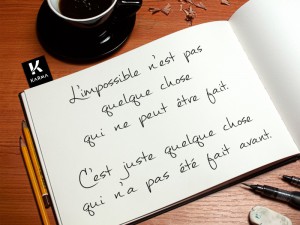 K
KARMA
L'impossible n'est pas
quelque chose
qui ne peut être fait.
C'est juste quelque chose
qui n'a pas été fait avant.